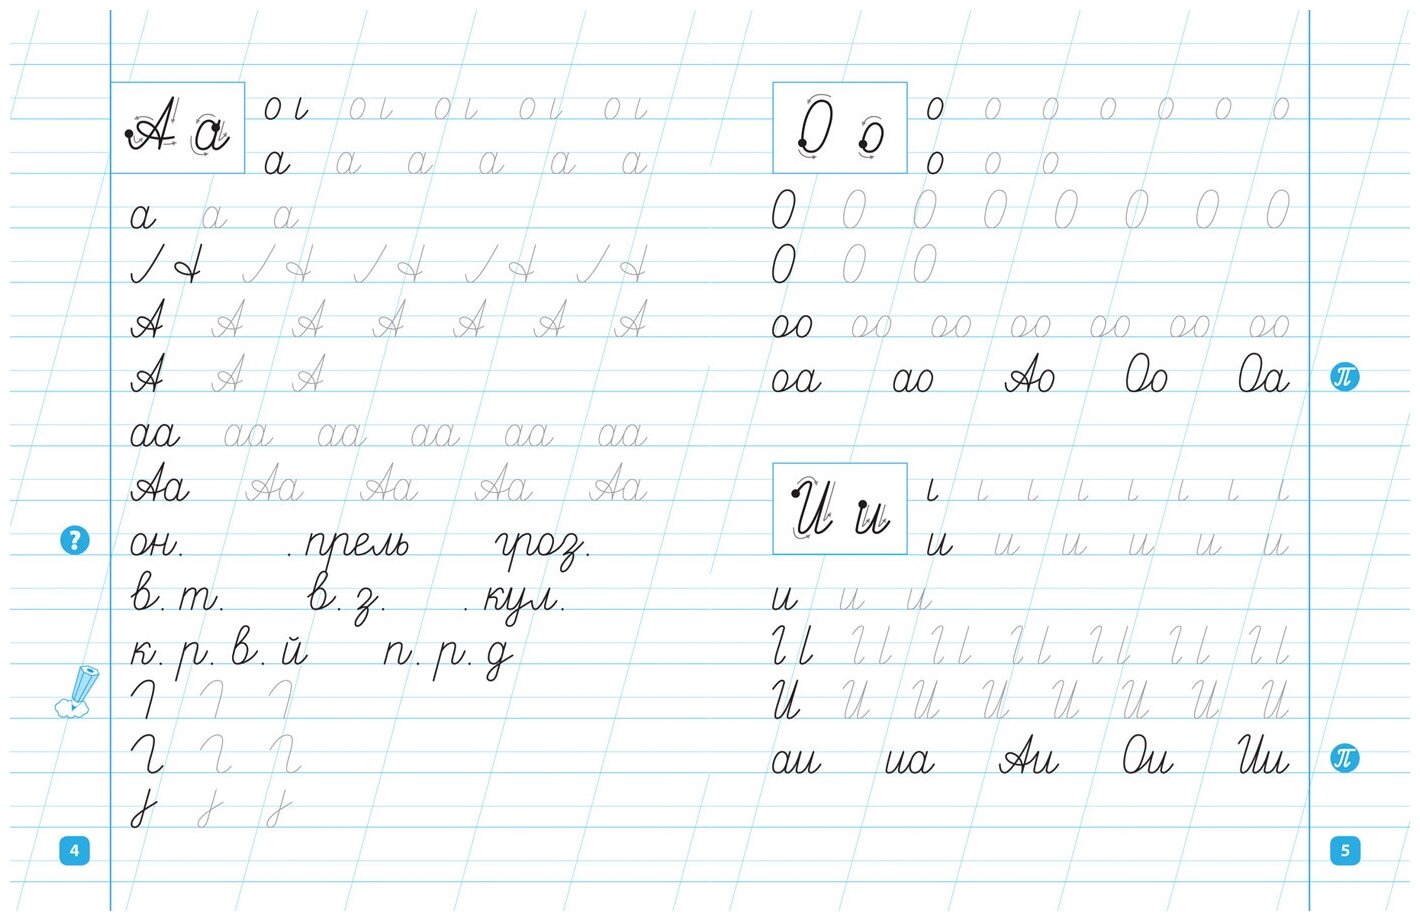 А а
о ι о ι о ι о ι о ι
а а а а а а
а а а
А А А А А А А
А А А
аа аа аа аа аа аа
Аа Аа Аа Аа Аа
? он. .прель гроз.
в.т. в.з. .кул.
к.р.в.й п.р.д
4
О о
о о о о о о о
о о о
О О О О О О О О
О О О
оо оо оо оо оо оо оо
оа ао Ао Оо Оа π
И и
ι ι ι ι ι ι ι ι
и и и и и и
и и и
И И И И И И И И
аи иа Аи Ои Ии π
5